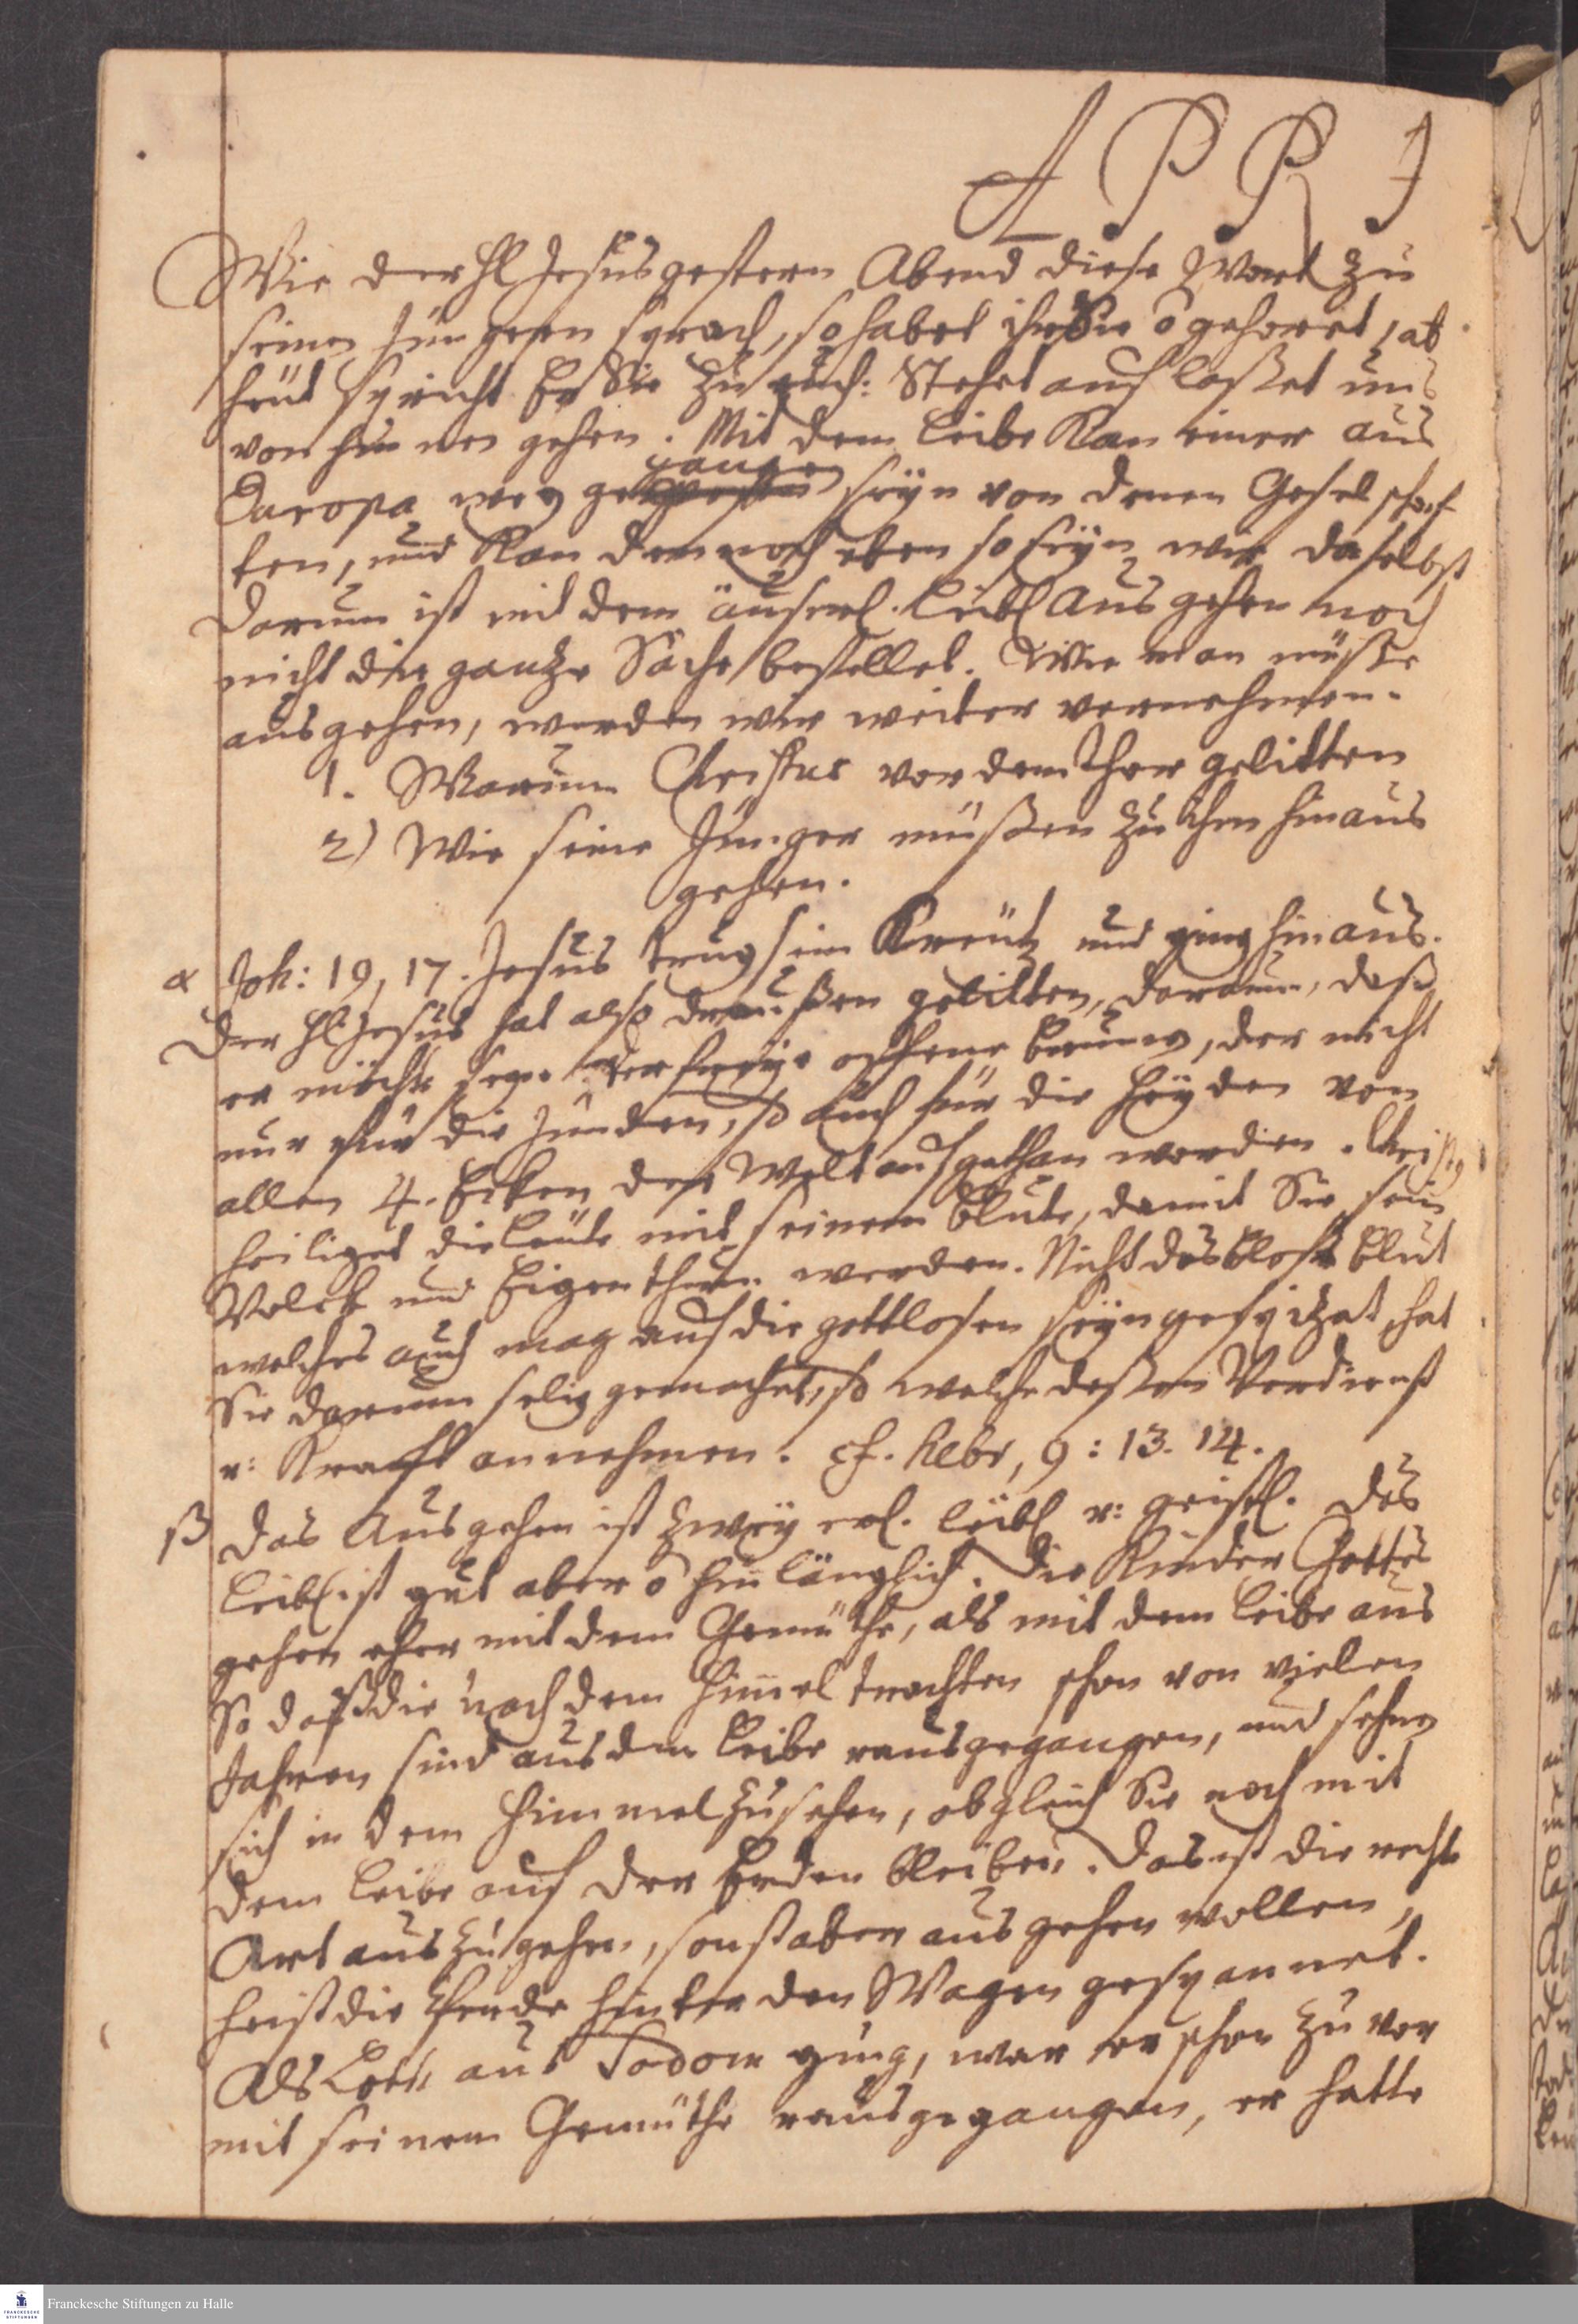 APRI
Wie der Hl Jesus gestern Abend diese Wort zu
seinen Jüngern sprach, so habet ihr Sie o gehöret, ab
heut spricht Er Sie zu euch: Stehet auf laßet uns
von hinnen gehen. Mit dem Leibe kan einer aus
Europa weg gegangen seyn von denen Geselschaf
ten, und kan dennoch eben so seyn wie daselbst
Darum ist mit dem äuserl. leibl Ausgehen noch
nicht die gantze Sache bestellet. Wie man müste
ausgehen, werden wir weiter vernehmen.
1. Warum Christus vor dem Thor gelitten
2) Wie seine Jünger müßen zu ihm hinaus
gehen.
α Joh: 19, 17. Jesus trug sein Kreutz und ging hinaus.
Der Hl Jesus hat also draußen gelitten, darum, daß
er möchte seyn der freye offene Brunn, der nicht
nur für die Jüden, so auch für die Heyden von
allen 4. Ecken der Welt aufgethan worden. Christus
heiliget die Leute mit seinem Blute, damit Sie sein
Volck und Eigenthum werden. Nicht das bloße Blut
welches auch mag auf die gottlosen seyn gesprizet, hat
Sie darum selig gemachet, so welche deßen Verdienst
u: Krafft annehmen. cf. Hebr, 9: 13. 14.
β Das Ausgehen ist zweyerl. leibl u: geistl. Das
leibl ist gut aber o hinlänglich. Die Kinder Gottes
gehen eher mit dem Gemüthe, als mit dem Leibe aus
So daß die nach dem Himel trachten schon von vielen
Jahren sind aus dem Leibe rausgegangen, und sehnen
sich in dem Himmel zu sehen, obgleich Sie noch mit
dem Leibe auf der Erden bleiben. Das ist die rechte
Art auszugehen, sonst aber ausgehen wollen,
heist die Pferde hinter den Wagen gespannet.
Als Loth aus Sodom ging, war er schon zuvor
mit seinem Gemüthe rausgegangen, er hatte
Franckesche Stiftungen zu Halle